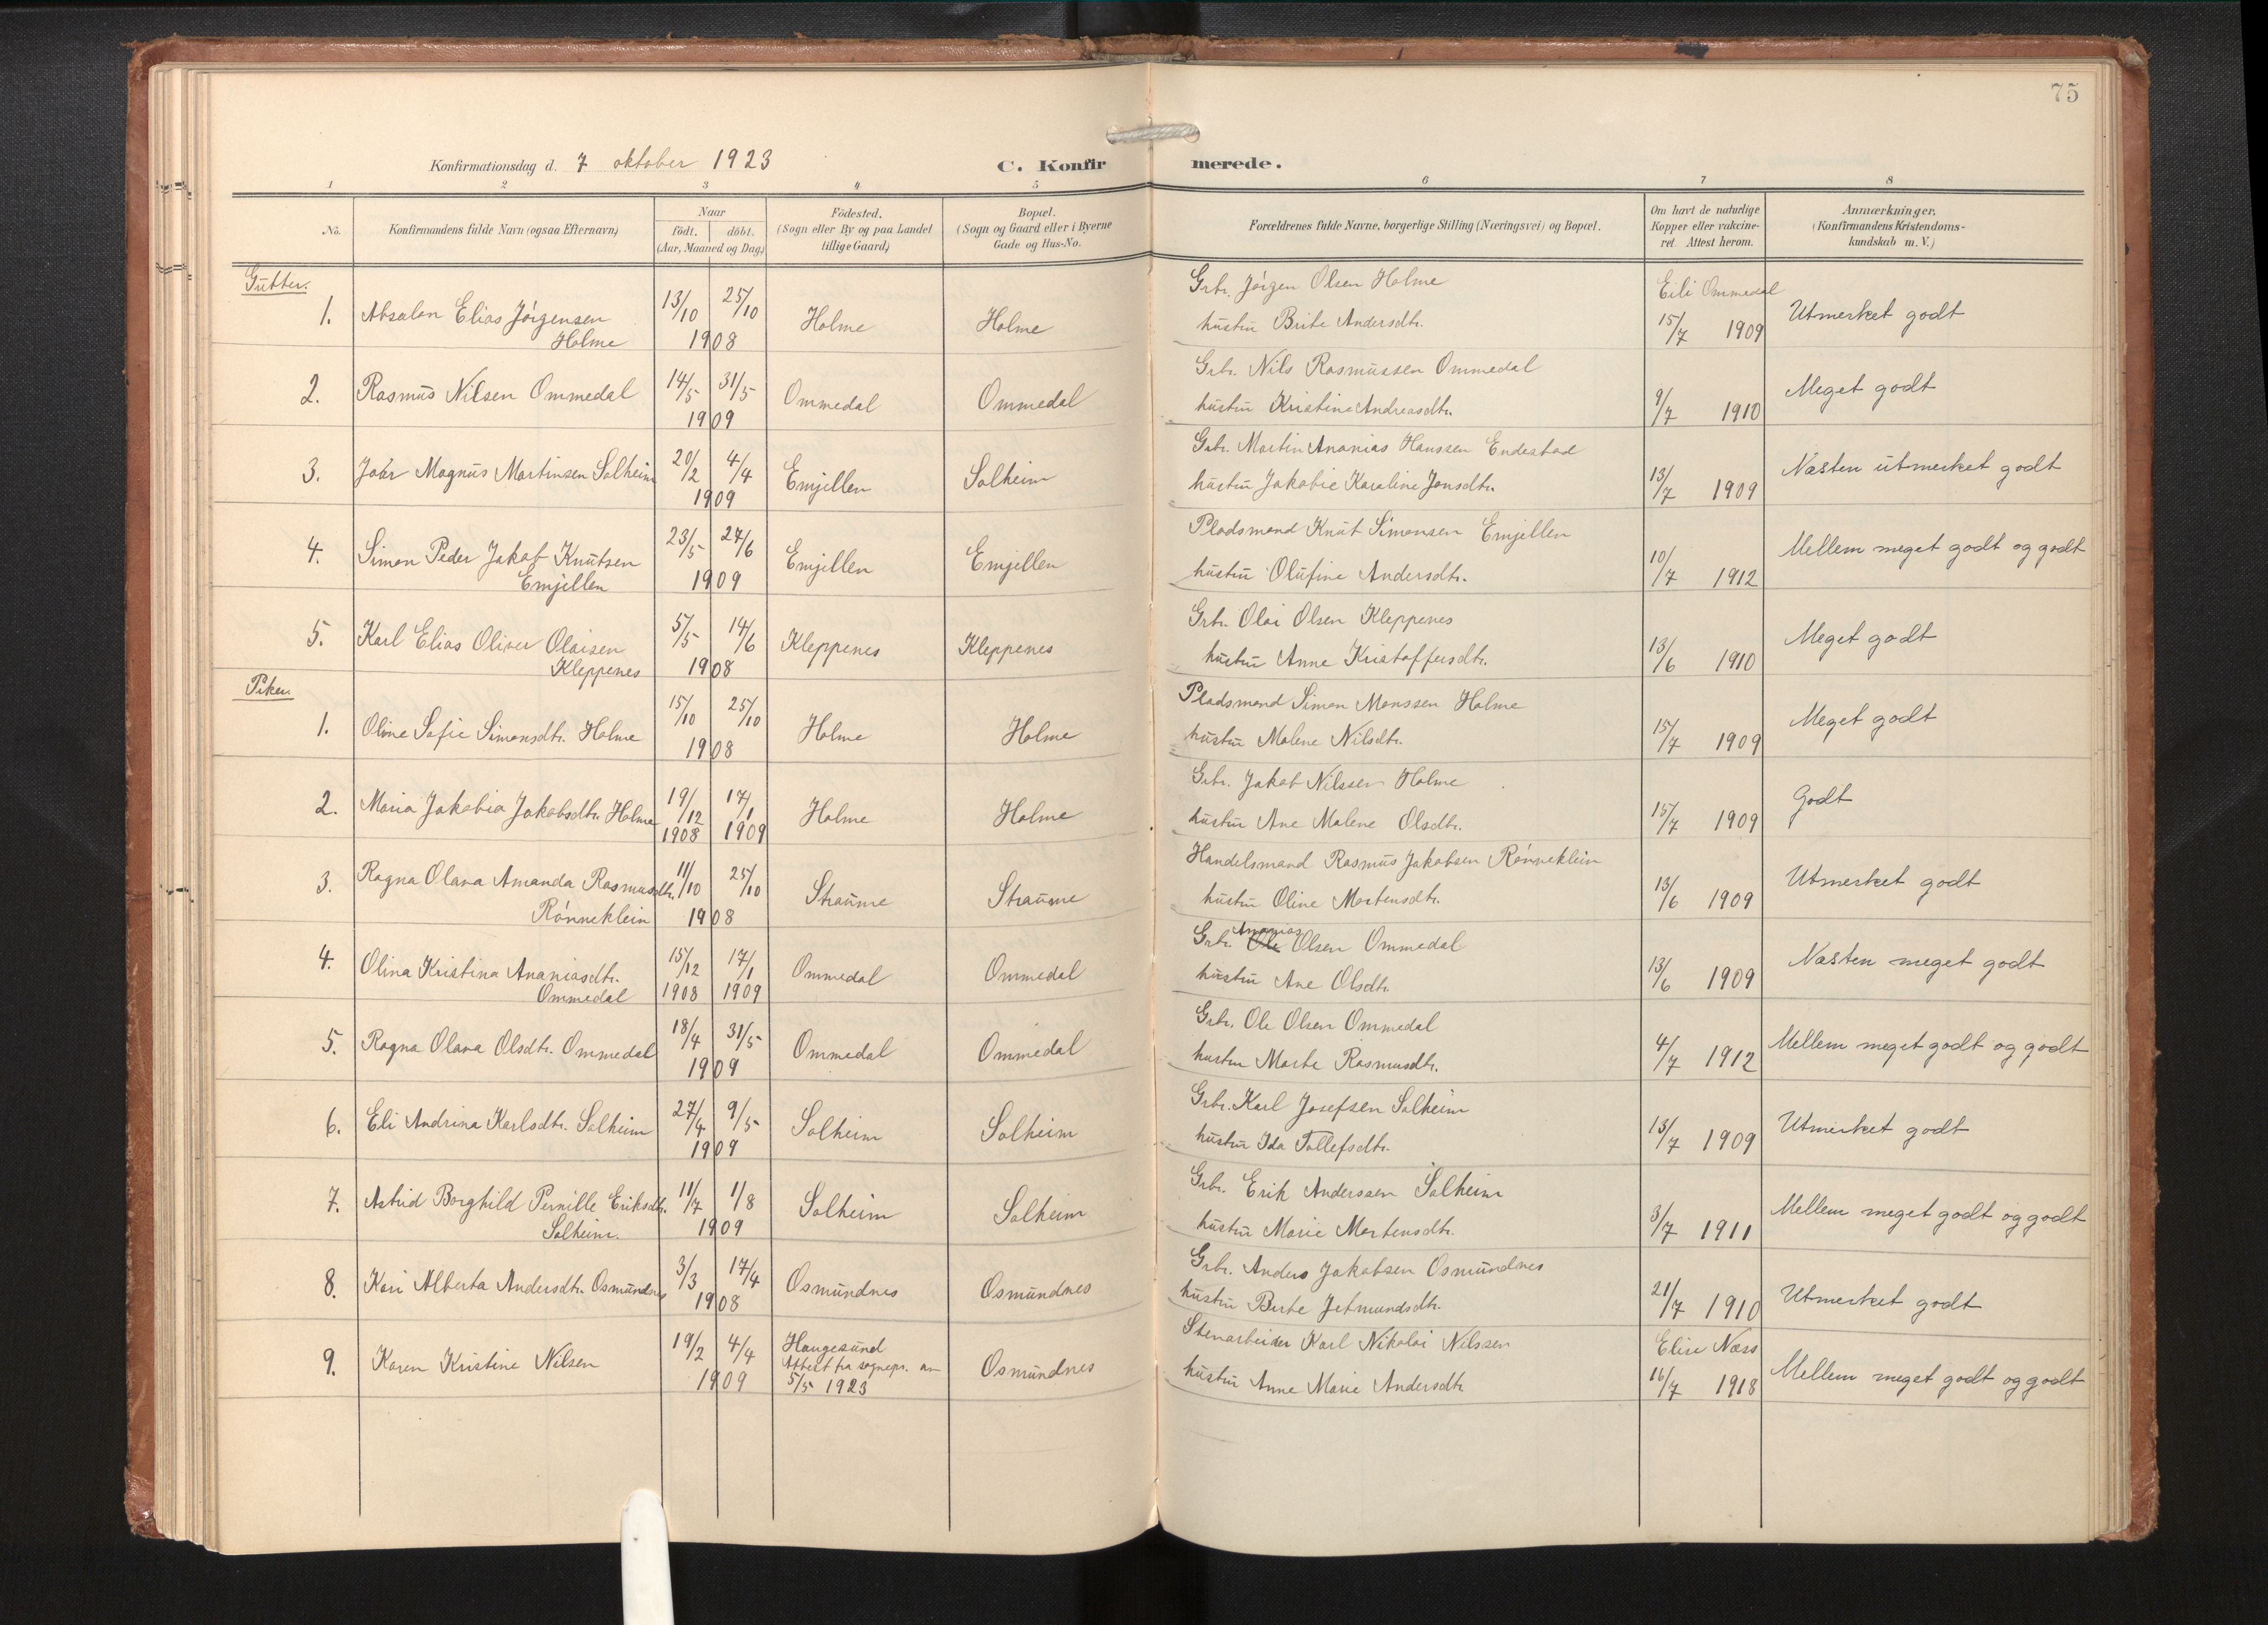 75
Konfirmationsdag d. 7 oktober 1923
C. Konfirmerede.
1 2 3 4 5 6 7 8
No.
Konfirmandens fulde Navn (ogsaa Efternavn)
Naar
født. døbt.
(Aar, Maaned og Dag)
Födested.
(Sogn eller By og paa Landet
tillige Gaard)
Bopæl.
(Sogn og Gaard eller i Byerne
Gade og Hus-No.
Forældrenes fulde Navne, borgerlige Stilling (Næringsvei) og Bopæl.
Om havt de naturlige
Kopper eller vakcine-
ret. Attest herom.
Anmærkninger.
(Konfirmandens Kristendoms-
kundskab m. V.)
Gutter.
1. Absalon Elias Jørgensen Holme 13/10 25/10 1908 Holme Holme Grbr. Jørgen Olsen Holme hustru Brite Andersdtr. Eili Ommedal 15/7 1909 Utmerket godt
2. Rasmus Nilsen Ommedal 14/5 31/5 1909 Ommedal Ommedal Grbr. Nils Rasmussen Ommedal hustru Kristine Andreasdtr. 9/7 1910 Meget godt
3. Joar Magnus Martinsen Solheim 20/2 4/4 1909 Emjellen Solheim Grbr. Martin Ananias Hanssen Endestad hustru Jakobie Karoline Jonsdtr. 13/7 1909 Næsten utmerket godt
4. Simon Peder Jakob Knutsen Emjellen 23/5 27/6 1909 Emjellen Emjellen Pladsmand Knut Simonsen Emjellen hustru Olufine Andersdtr. 10/7 1912 Mellem meget godt og godt
5. Karl Elias Oliver Olaisen Kleppenes 5/5 14/6 1908 Kleppenes Kleppenes Grbr. Olai Olsen Kleppenes hustru Anne Kristoffersdtr. 13/6 1910 Meget godt
Piker.
1. Oline Sofie Simonsdtr. Holme 15/10 25/10 1908 Holme Holme Pladsmand Simon Monssen Holme hustru Malene Nilsdtr. 15/7 1909 Meget godt
2. Maria Jakobia Jakobsdtr. Holme 19/12 1908 17/1 1909 Holme Holme Grbr. Jakob Nilssen Holme hustru Ane Malene Olsdtr. 15/7 1909 Godt
3. Ragna Olava Amanda Rasmusdtr. Rønneklein 11/10 25/10 1908 Straume Straume Handelsmand Rasmus Jakobsen Rønneklein hustru Oline Martensdtr. 13/6 1909 Utmerket godt
4. Olina Kristina Ananiasdtr. Ommedal 15/12 1908 17/1 1909 Ommedal Ommedal Grbr. Ole Ananias Olsen Ommedal hustru Ane Olsdtr. 13/6 1909 Næsten meget godt
5. Ragna Olava Olsdtr. Ommedal 18/4 31/5 1909 Ommedal Ommedal Grbr. Ole Olsen Ommedal hustru Marte Rasmusdtr. 4/7 1912 Mellem meget godt og godt
6. Eli Andrina Karlsdtr. Solheim 27/4 9/5 1909 Solheim Solheim Grbr. Karl Josefsen Solheim hustru Ida Tollefsdtr. 13/7 1909 Utmerket godt
7. Astrid Borghild Pernille Eriksdtr. Solheim. 11/7 1/8 1909 Solheim Solheim Grbr. Erik Anderssen Solheim hustru Marie Martensdtr. 3/7 1911 Mellem meget godt og godt
8. Kari Alberta Andersdtr. Osmundnes 3/3 17/4 1908 Osmundnes Osmundnes Grbr. Anders Jakobsen Osmundnes hustru Berte Jetmundsdtr. 21/7 1910 Utmerket godt
9. Karen Kristine Nilsen 19/2 4/4 1909 Haugesund Attest fra sognepr. av 5/5 1923 Osmundnes Stenarbeider Karl Nikolai Nilssen hustru Anne Marie Andersdtr. Elise Næss 16/7 1918 Mellem meget godt og godt